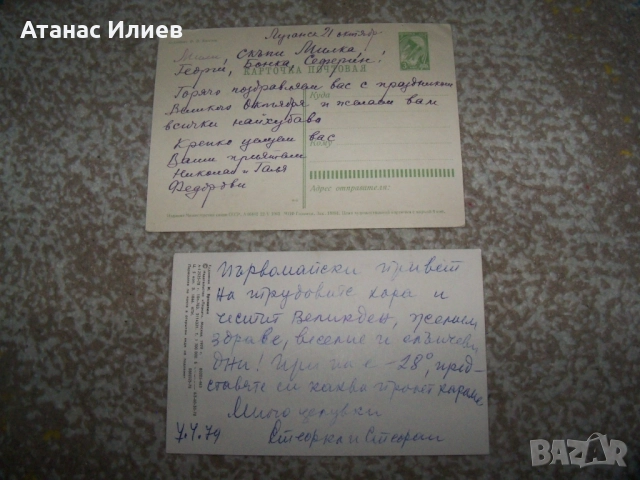 Атанас Илиев
Луганск 21 октябр.
Мили, скъпи Милка!
Георги, Бонка, Сеферин!
КАРТОЧКА ПОЧТОВАЯ
Горячо поздравляем вас с праздником
Куда
Великого Октября и желаем вам
всички найхубаво
Крепко целуем вас
Кому
Ваши приятели
Николай и Галя
Федорови
Адрес отправителя:
Първомайски привет
на трудовите хора и
честит Великден, желаем
здраве, веселие и слънчеви
дни! При нас е -28°, пред-
ставяте си каква пролет караме
Много целувки
7.4.79 Стеорка и Стеорги
BAZAR